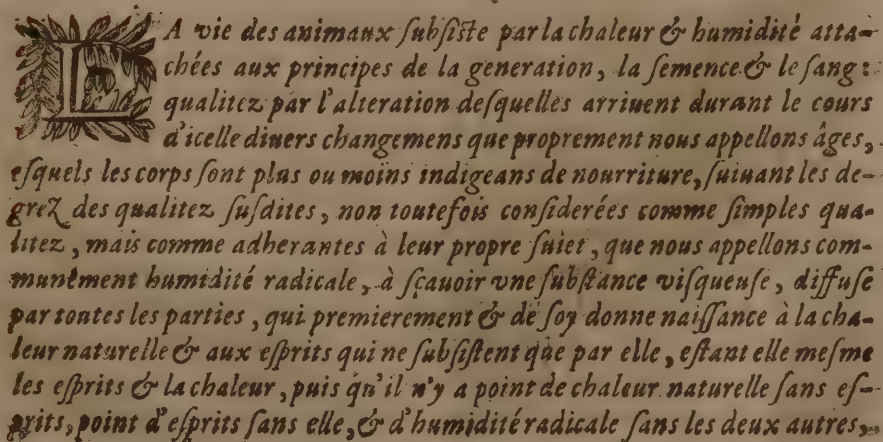 LA vie des animaux ſubſiſte par la chaleur & humidité atta-
chées aux principes de la generation, la ſemence & le ſang:
qualitez par l'alteration deſquelles arriuent durant le cours
d'icelle diuers changemens que proprement nous appellons âges,
eſquels les corps ſont plus ou moins indigeans de nourriture, ſuiuant les de-
grez des qualitez ſuſdites, non toutefois conſiderées comme ſimples qua-
litez, mais comme adherantes à leur propre ſuiet, que nous appellons com-
munément humidité radicale, à ſçauoir vne ſubſtance viſqueuſe, diffuſe
par toutes les parties, qui premierement & de ſoy donne naiſſance à la cha-
leur naturelle & aux eſprits qui ne ſubſiſtent que par elle, eſtant elle meſme
les eſprits & la chaleur, puis qu'il n'y a point de chaleur naturelle ſans eſ-
prits, point d'eſprits ſans elle, & d'humidité radicale ſans les deux autres,